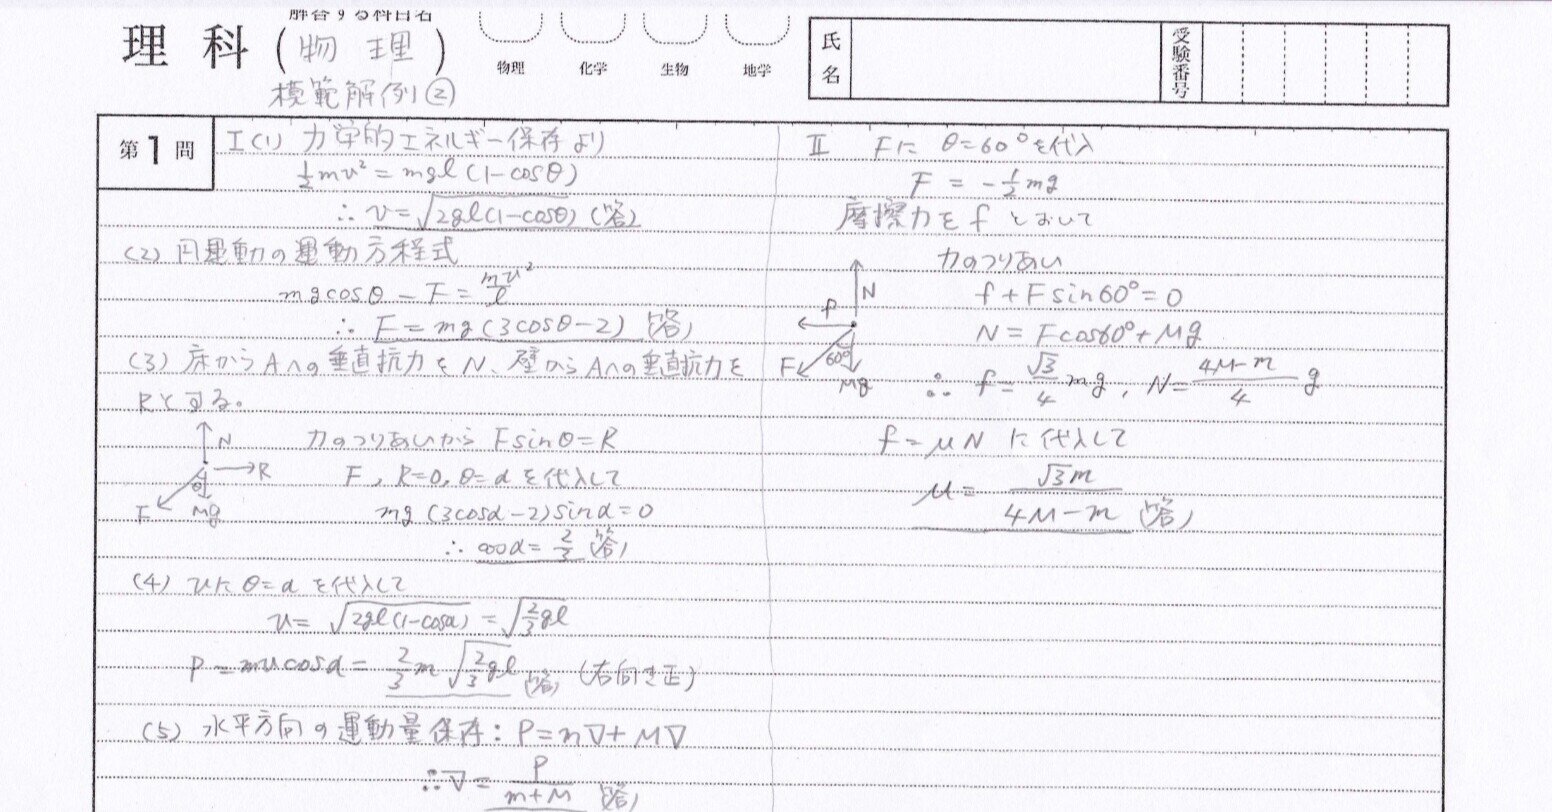 解答する科目名
理 科 ( 物 理 )
物理 化学 生物 地学
氏名
受験番号
模範解例②
第1問
I (1) 力学的エネルギー保存より
½mv² = mgl (1-cosθ)
∴ v = √2gl(1-cosθ) (答)
(2) 円運動の運動方程式
mgcosθ - F = mv²/l
∴ F = mg(3cosθ-2) (答)
(3) 床からAへの垂直抗力をN、壁からAへの垂直抗力を
Rとする。
N
R
θ
F
Mg
力のつりあいから Fsinθ = R
F, R=0, θ=α を代入して
mg (3cosα-2) sinα = 0
∴ cosα = 2/3 (答)
(4) vに θ=α を代入して
v = √2gl(1-cosα) = √2/3gl
P = mvcosα = 2/3 m √2/3gl (答) (右向き正)
(5) 水平方向の運動量保存: P = mV + MV
∴ V = P/m+M (答)
II Fに θ=60°を代入
F = -½mg
摩擦力を f とおいて
力のつりあい
N
f
F
60°
Mg
f + Fsin60° = 0
N = Fcos60° + Mg
∴ f = √3/4 mg, N = 4M-m/4 g
f = μN に代入して
μ = √3m/4M-m (答)